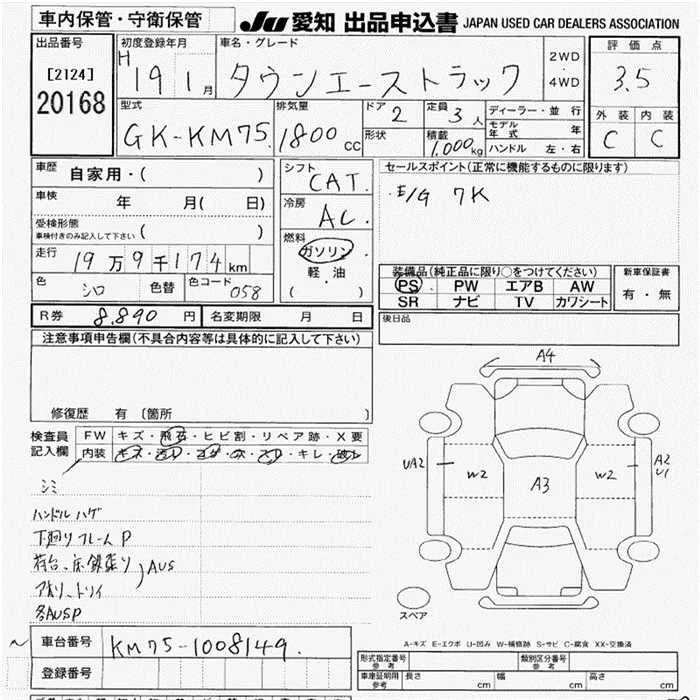 車内保管・守衛保管
JU 愛知 出品申込書 JAPAN USED CAR DEALERS ASSOCIATION
出品番号
[2124]
20168
初度登録年月
H 19 1 月
車名・グレード
タウンエーストラック
2WD
・
4WD
評価点
3.5
外装 内装
C C
型式
GK-KM75
排気量
1800 cc
ドア 2
形状
定員 3 人
積載 1,000 kg
ディーラー・並行
モデル年式 年
ハンドル 左・右
車歴 自家用・( )
車検 年 月( 日)
受検形態
車検付きのみ記入して下さい ( )
走行 19万9千174 km
色 シロ 色替 色コード 058
R券 8.890 円 名変期限 月 日
シフト
CAT.
冷房
AC
燃料
ガソリン
軽・油
( )
セールスポイント(正常に機能するものに限ります)
E/G 7K
装備品(純正品に限り○をつけてください)
PS PW エアB AW
SR ナビ TV カワシート
新車保証書
有・無
後日品
注意事項申告欄(不具合内容等は具体的に記入して下さい)
修復歴 有 〔箇所 〕
検査員
記入欄
FW キズ・飛石・ヒビ割・リペア跡・X要
内装 キズ・汚レ・コゲ・穴・スレ・キレ・破レ
シミ
ハンドルハゲ
下廻りフレームP
荷台、床鉄張り
アオリ、トリイ
AUS
各AUSP
A4
UA2
W2
A3
W2
A2
U1
スペア
A-キズ E-エクボ U-凹み W-補修跡 S-サビ C-腐食 XX-交換済
車台番号 KM75-1008149.
登録番号
形式指定番号
参考
類別区分番号
参考
車庫証明用
参考
長さ cm 幅 cm 高さ cm